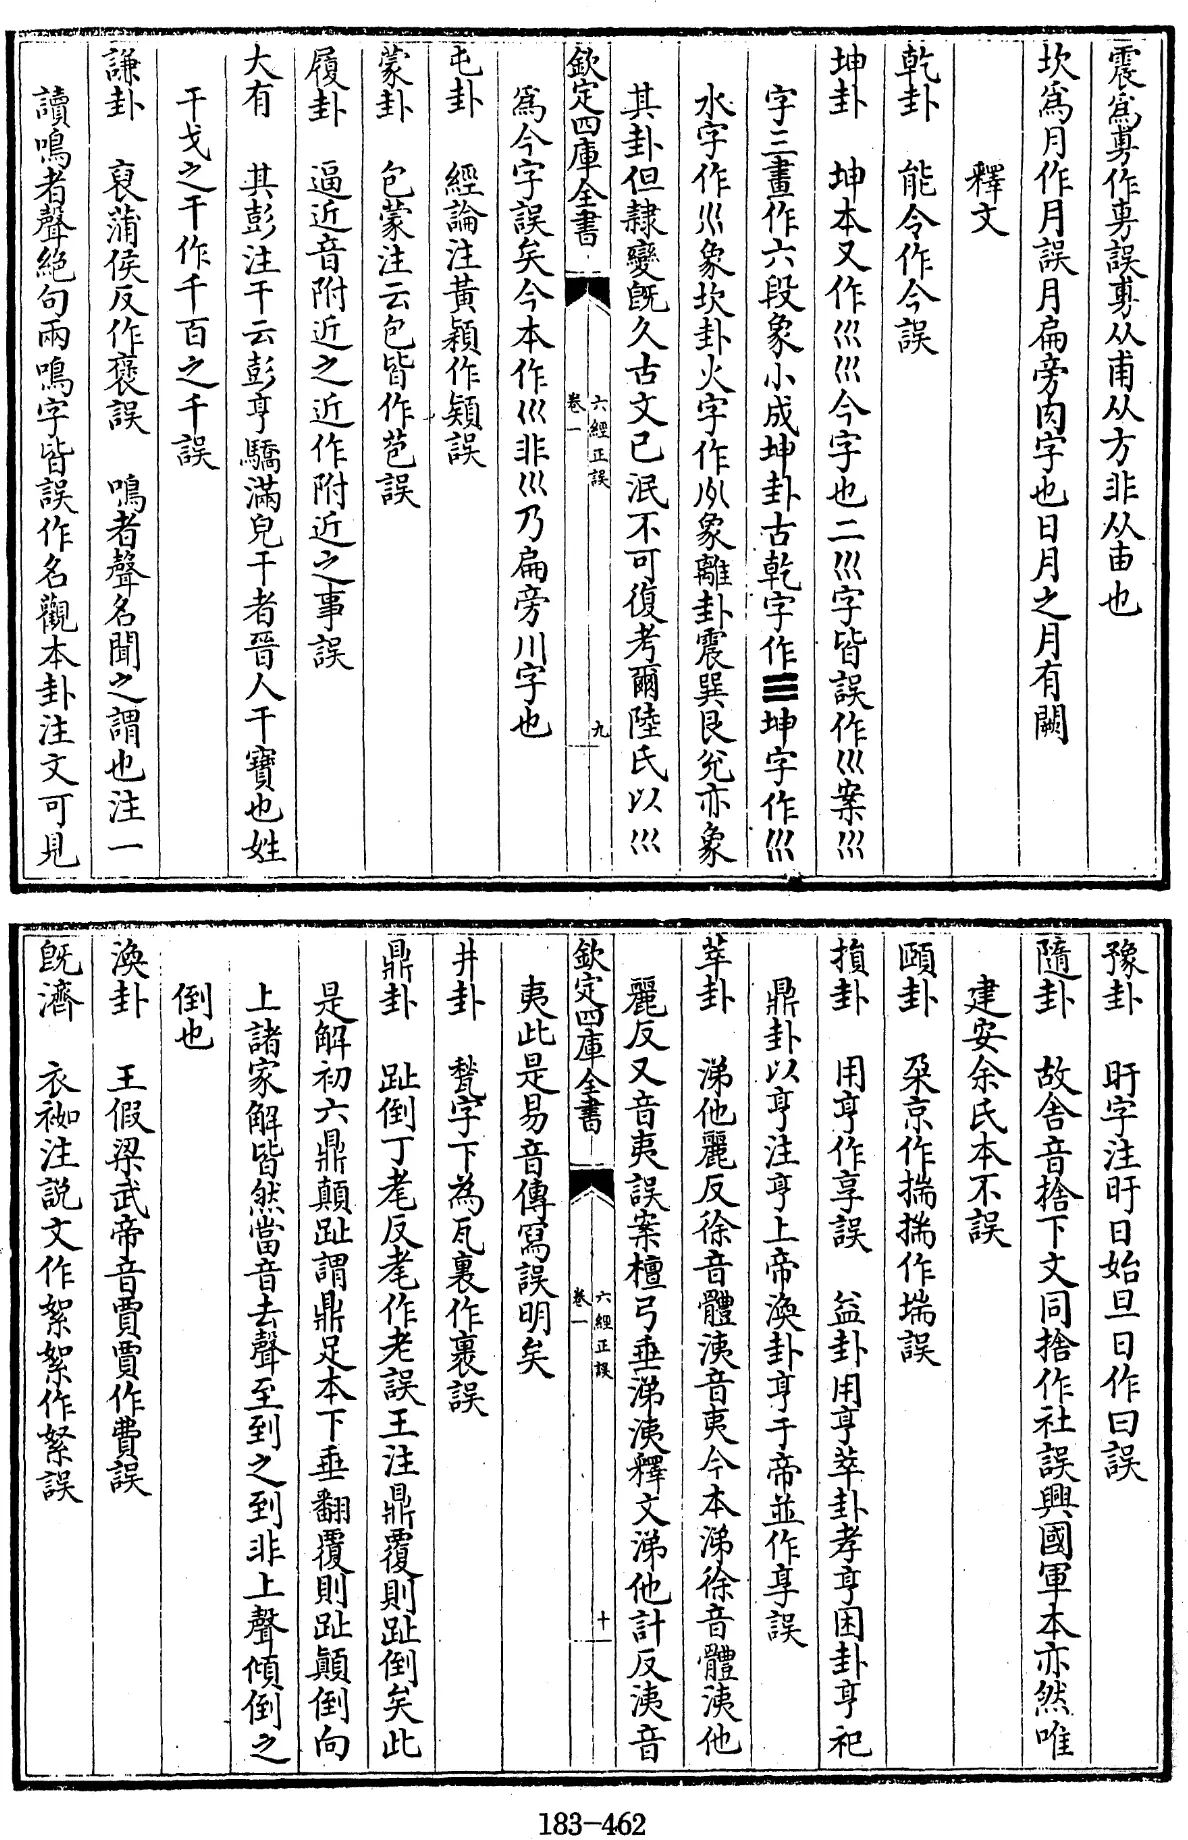 震爲旉作専誤旉从甫从方非从由也
坎爲月作月誤月扁旁肉字也日月之月有闕
釋文
乾卦　能令作今誤
坤卦　坤本又作巛巛今字也二巛字皆誤作巛案巛
字三畫作六段象小成坤卦古乾字作☰坤字作巛
水字作巛象坎卦火字作灬象離卦震巽艮兊亦象
其卦但隷變旣久古文已泯不可復考爾陸氏以巛
欽定四庫全書
六經正誤
卷一
九
爲今字誤矣今本作巛非巛乃扁旁川字也
屯卦　經論注黃穎作頴誤
蒙卦　包蒙注云包皆作苞誤
履卦　逼近音附近之近作附近之事誤
大有　其彭注干云彭亨驕滿皃干者晉人干寶也姓
干戈之干作千百之千誤
謙卦　裒蒲侯反作褒誤　鳴者聲名聞之謂也注一
讀鳴者聲絶句兩鳴字皆誤作名觀本卦注文可見
豫卦　旴字注旴日始旦日作曰誤
隨卦　故舍音捨下文同捨作社誤興國軍本亦然唯
建安余氏本不誤
頤卦　朶京作揣揣作耑誤
損卦　用亨作享誤　益卦用亨萃卦孝亨困卦亨祀
鼎卦以亨注亨上帝渙卦亨于帝並作享誤
萃卦　涕他麗反徐音體洟音夷今本涕徐音體洟他
麗反又音夷誤案檀弓垂涕洟釋文涕他計反洟音
欽定四庫全書
六經正誤
卷一
十
夷此是易音傳寫誤明矣
井卦　甃字下為瓦裏作裹誤
鼎卦　趾倒丁耄反耄作老誤王注鼎覆則趾倒矣此
是解初六鼎顛趾謂鼎足本下垂翻覆則趾顛倒向
上諸家解皆然當音去聲至到之到非上聲傾倒之
倒也
渙卦　王假梁武帝音賈賈作費誤
旣濟　衣袽注說文作絮絮作絮誤
183-462